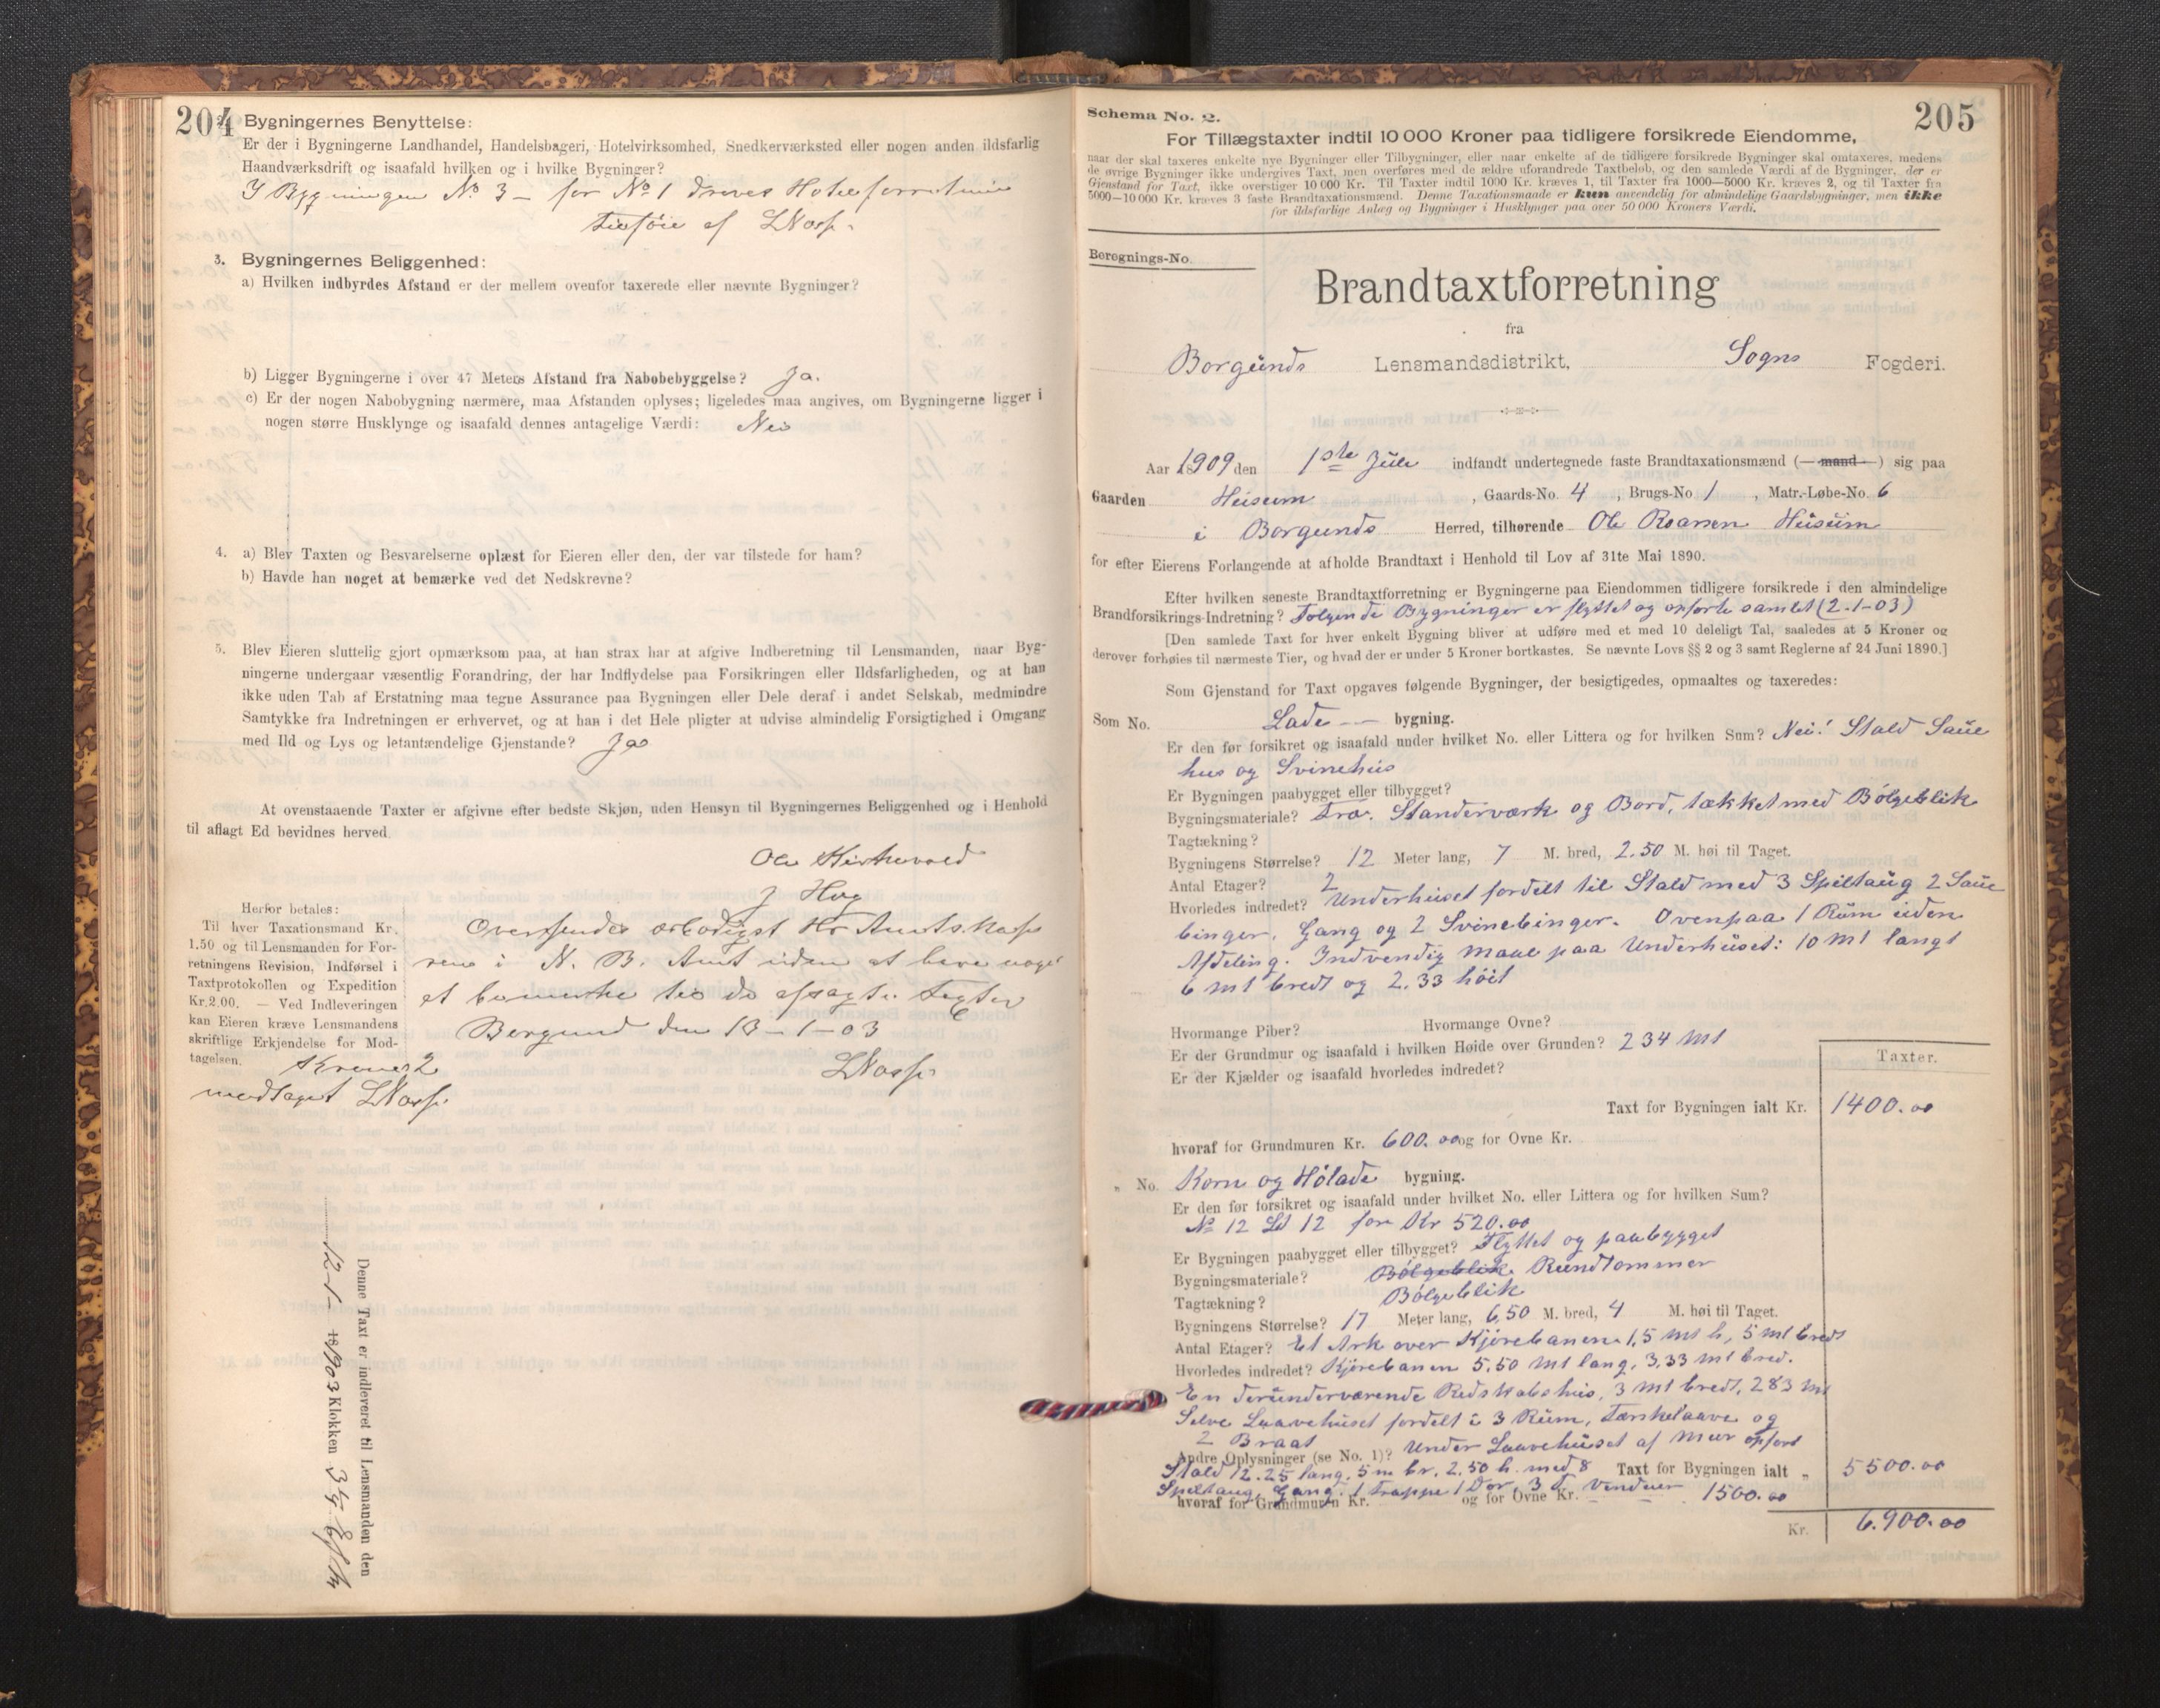 204
2. Bygningernes Benyttelse:
Er der i Bygningerne Landhandel, Handelsbageri, Hotelvirksomhed, Snedkerværksted eller nogen anden ildsfarlig
Haandværksdrift og isaafald hvilken og i hvilke Bygninger?
I Bygningen No 3 — for No 1 dreves Hotelforretning
tilføie af LHosp.
3. Bygningernes Beliggenhed:
a) Hvilken indbyrdes Afstand er der mellem ovenfor taxerede eller nævnte Bygninger?
b) Ligger Bygningerne i over 47 Meters Afstand fra Nabobebyggelse? Ja.
c) Er der nogen Nabobygning nærmere, maa Afstanden oplyses; ligeledes maa angives, om Bygningerne ligger i
nogen større Husklynge og isaafald dennes antagelige Værdi: Nei
4. a) Blev Taxten og Besvarelserne oplæst for Eieren eller den, der var tilstede for ham?
b) Havde han noget at bemærke ved det Nedskrevne?
5. Blev Eieren sluttelig gjort opmærksom paa, at han strax har at afgive Indberetning til Lensmanden, naar Byg-
ningerne undergaar væsentlig Forandring, der har Indflydelse paa Forsikringen eller Ildsfarligheden, og at han
ikke uden Tab af Erstatning maa tegne Assurance paa Bygningen eller Dele deraf i andet Selskab, medmindre
Samtykke fra Indretningen er erhvervet, og at han i det Hele pligter at udvise almindelig Forsigtighed i Omgang
med Ild og Lys og letantændelige Gjenstande? Ja
At ovenstaaende Taxter er afgivne efter bedste Skjøn, uden Hensyn til Bygningernes Beliggenhed og i Henhold
til aflagt Ed bevidnes herved.
Ole Kirkevold
J Hag
Herfor betales:
Til hver Taxationsmand Kr.
1.50 og til Lensmanden for For-
retningens Revision, Indførsel i
Taxtprotokollen og Expedition
Kr. 2.00. — Ved Indleveringen
kan Eieren kræve Lensmandens
skriftlige Erkjendelse for Mod-
tagelsen.
Kroner 2
modtaget
Oversendes ærbødigst Hr Amtskasse
reren i N. B. Amt uden at have noget
at bemerke til de afsagte Taxter
Borgund den 13-1-03
Denne Taxt er indleveret til Lensmanden den
12-1- 1903 Klokken 3¼ Eftm
205
Schema No. 2.
For Tillægstaxter indtil 10 000 Kroner paa tidligere forsikrede Eiendomme,
naar der skal taxeres enkelte nye Bygninger eller Tilbygninger, eller naar enkelte af de tidligere forsikrede Bygninger skal omtaxeres, medens
de øvrige Bygninger ikke undergives Taxt, men overføres med de ældre uforandrede Taxtbeløb, og den samlede Værdi af de Bygninger, der er
Gjenstand for Taxt, ikke overstiger 10 000 Kr. Til Taxter indtil 1000 Kr. kræves 1, til Taxter fra 1000—5000 Kr. kræves 2, og til Taxter fra
5000—10 000 Kr. kræves 3 faste Brandtaxationsmænd. Denne Taxationsmaade er kun anvendelig for almindelige Gaardsbygninger, men ikke
for ildsfarlige Anlæg og Bygninger i Husklynger paa over 50 000 Kroners Værdi.
Beregnings-No.
Brandtaxtforretning
fra
Borgunds Lensmandsdistrikt, Sogns Fogderi.
Aar 1909 den 1ste Juli indfandt undertegnede faste Brandtaxationsmænd (—mand—) sig paa
Gaarden Husum, Gaards-No. 4, Brugs-No 1, Matr.-Løbe-No. 6
i Borgunds Herred, tilhørende Ole Roarsen Husum
for efter Eierens Forlangende at afholde Brandtaxt i Henhold til Lov af 31te Mai 1890.
Efter hvilken seneste Brandtaxtforretning er Bygningerne paa Eiendommen tidligere forsikrede i den almindelige
Brandforsikrings-Indretning? Følgende Bygninger er flyttet og opførte samlet (2-1-03)
[Den samlede Taxt for hver enkelt Bygning bliver at udføre med et med 10 deleligt Tal, saaledes at 5 Kroner og
derover forhøies til nærmeste Tier, og hvad der er under 5 Kroner bortkastes. Se nævnte Lovs §§ 2 og 3 samt Reglerne af 24 Juni 1890.]
Som Gjenstand for Taxt opgaves følgende Bygninger, der besigtigedes, opmaaltes og taxeredes:
Som No. Lade — bygning.
Er den før forsikret og isaafald under hvilket No. eller Littera og for hvilken Sum? Nei! Stald Saue
hus og Svinehus
Er Bygningen paabygget eller tilbygget?
Bygningsmateriale? Træ. Standerværk og Bord, tækket med Bølgeblik
Tagtækning?
Bygningens Størrelse? 12 Meter lang, 7 M. bred, 2.50 M. høi til Taget.
Antal Etager? 2
Hvorledes indredet? Underhuset fordelt til Stald med 3 Spiltaug 2 Saue
binger, Gang og 2 Svinebinger. Ovenpaa 1 Rum uden
Afdeling. Indvendig Maal paa Underhuset: 10 mt langt
6 mt bredt og 2.33 høit
Hvormange Piber? Hvormange Ovne?
Er der Grundmur og isaafald i hvilken Høide over Grunden? 2 34 Mt
Er der Kjælder og isaafald hvorledes indredet?
Taxter.
Taxt for Bygningen ialt Kr. 1400.00
hvoraf for Grundmuren Kr. 600.00 og for Ovne Kr.
" No. Korn og Hølade bygning.
Er den før forsikret og isaafald under hvilket No. eller Littera og for hvilken Sum?
No 12 Ld 12 for Kr 520.00
Er Bygningen paabygget eller tilbygget? Flyttet og paabygget
Bygningsmateriale? Bølgeblik Rundtømmer
Tagtækning? Bølgeblik
Bygningens Størrelse? 17 Meter lang, 6,50 M. bred, 4 M. høi til Taget.
Antal Etager? Et Ark over Kjørebanen 1,5 mt h, 5 mt bredt
Hvorledes indredet? Kjørebanen 5,50 mt lang, 3,33 mt bred.
En derunderværende Redskabshus, 3 mt bredt, 283 mt
Selve Laavehuset fordelt i 3 Rum, Tærskelaave og
2 Braat
Andre Oplysninger (se No. 1)? Under Laavehuset af Mur opført
Stald 12.25 lang, 5 m br, 2.50 h. med 8 Taxt for Bygningen ialt " 5500.00
Spiltaug, Gang, 1 Trappe 1 Dør, 3 d. Venduer
hvoraf for Grundmuren Kr. og for Ovne Kr. 1500.00
Kr. 6.900.00